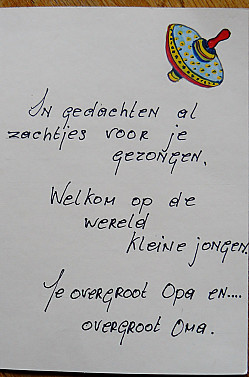 In gedachten al
zachtjes voor je
gezongen.
Welkom op de
wereld
kleine jongen.
Je overgroot Opa en....
overgroot Oma.